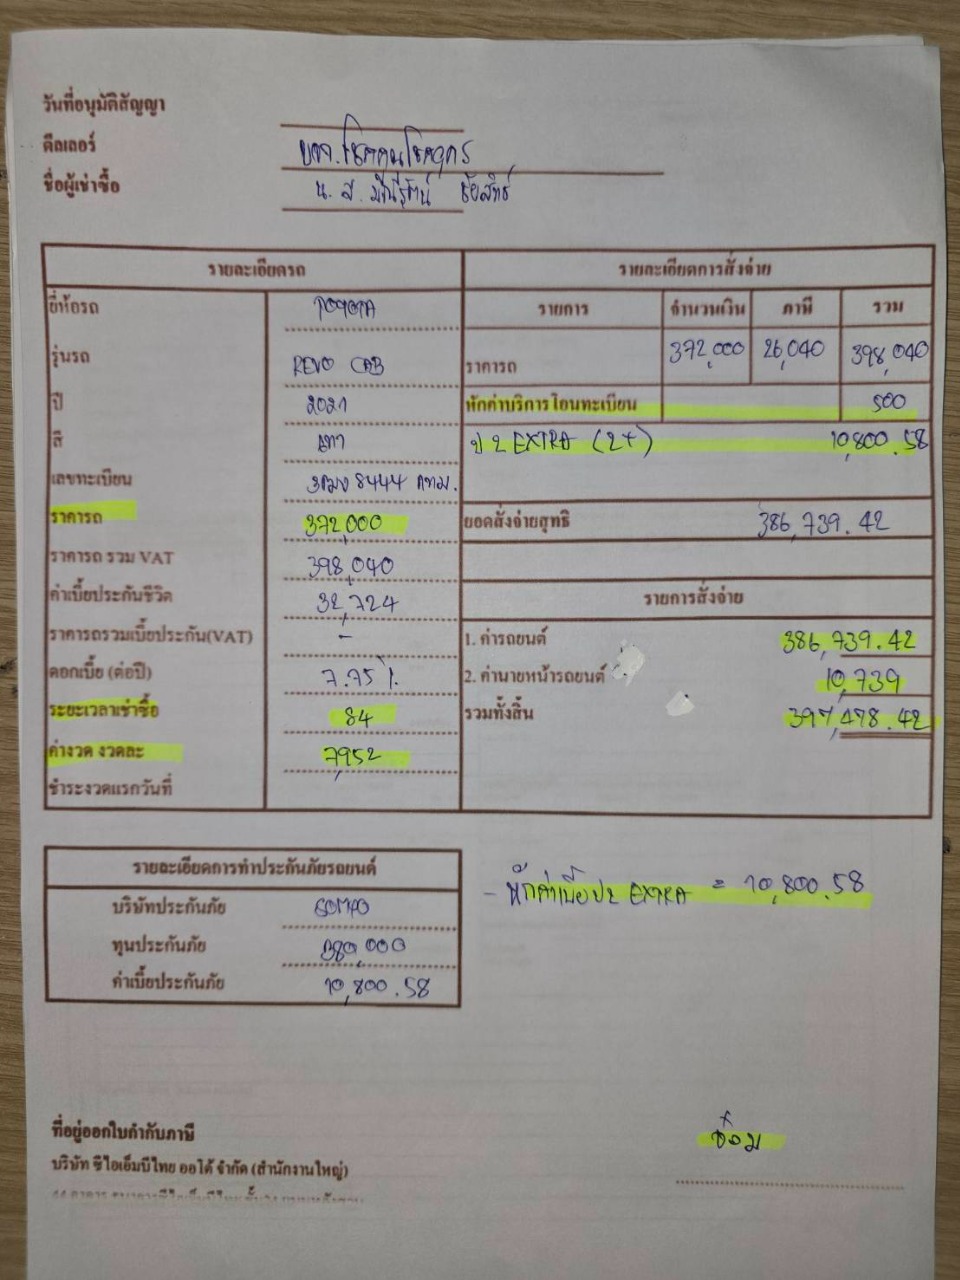 วันที่อนุมัติสัญญา
ดีลเลอร์ บจก.โชคคูนโชคถาวร
ชื่อผู้เช่าซื้อ น.ส.มณีรัตน์ ชัยสิทธิ์
รายละเอียดรถ
ยี่ห้อรถ TOYOTA
รุ่นรถ REVO CAB
ปี 2021
สี เทา
เลขทะเบียน 3ฒง 8444 กทม.
ราคารถ 372,000
ราคารถ รวม VAT 398,040
ค่าเบี้ยประกันชีวิต 32,724
ราคารถรวมเบี้ยประกัน(VAT) -
ดอกเบี้ย (ต่อปี) 7.75 %
ระยะเวลาเช่าซื้อ 84
ค่างวด งวดละ 7,952
ชำระงวดแรกวันที่
รายละเอียดการสั่งจ่าย
รายการ จำนวนเงิน ภาษี รวม
ราคารถ 372,000 26,040 398,040
หักค่าบริการโอนทะเบียน 500
ป 2 EXTRA (2+) 10,800.58
ยอดสั่งจ่ายสุทธิ 386,739.42
รายการสั่งจ่าย
1. ค่ารถยนต์ 386,739.42
2. ค่านายหน้ารถยนต์ 10,739
รวมทั้งสิ้น 397,478.42
รายละเอียดการทำประกันภัยรถยนต์
บริษัทประกันภัย SOMPO
ทุนประกันภัย 380,000
ค่าเบี้ยประกันภัย 10,800.58
- หักค่าเบี้ย ป2 EXTRA = 10,800.58
ที่อยู่ออกใบกำกับภาษี
บริษัท ซีไอเอ็มบีไทย ออโต้ จำกัด (สำนักงานใหญ่)
44 อาคาร ธนาคารซีไอเอ็มบีไทย ชั้น
x
ซ่อม